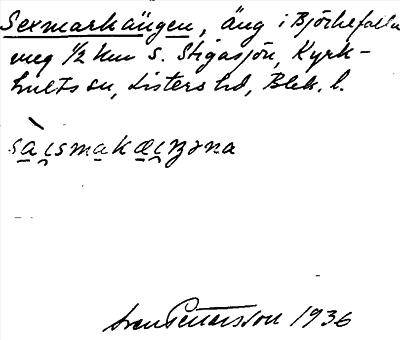 Sexmarkängen, äng i Björkefalla
meg ½ km S. Stigasjön, Kyrk-
hults sn, Listers hd, Blek. l.
Sven Pettersson 1936